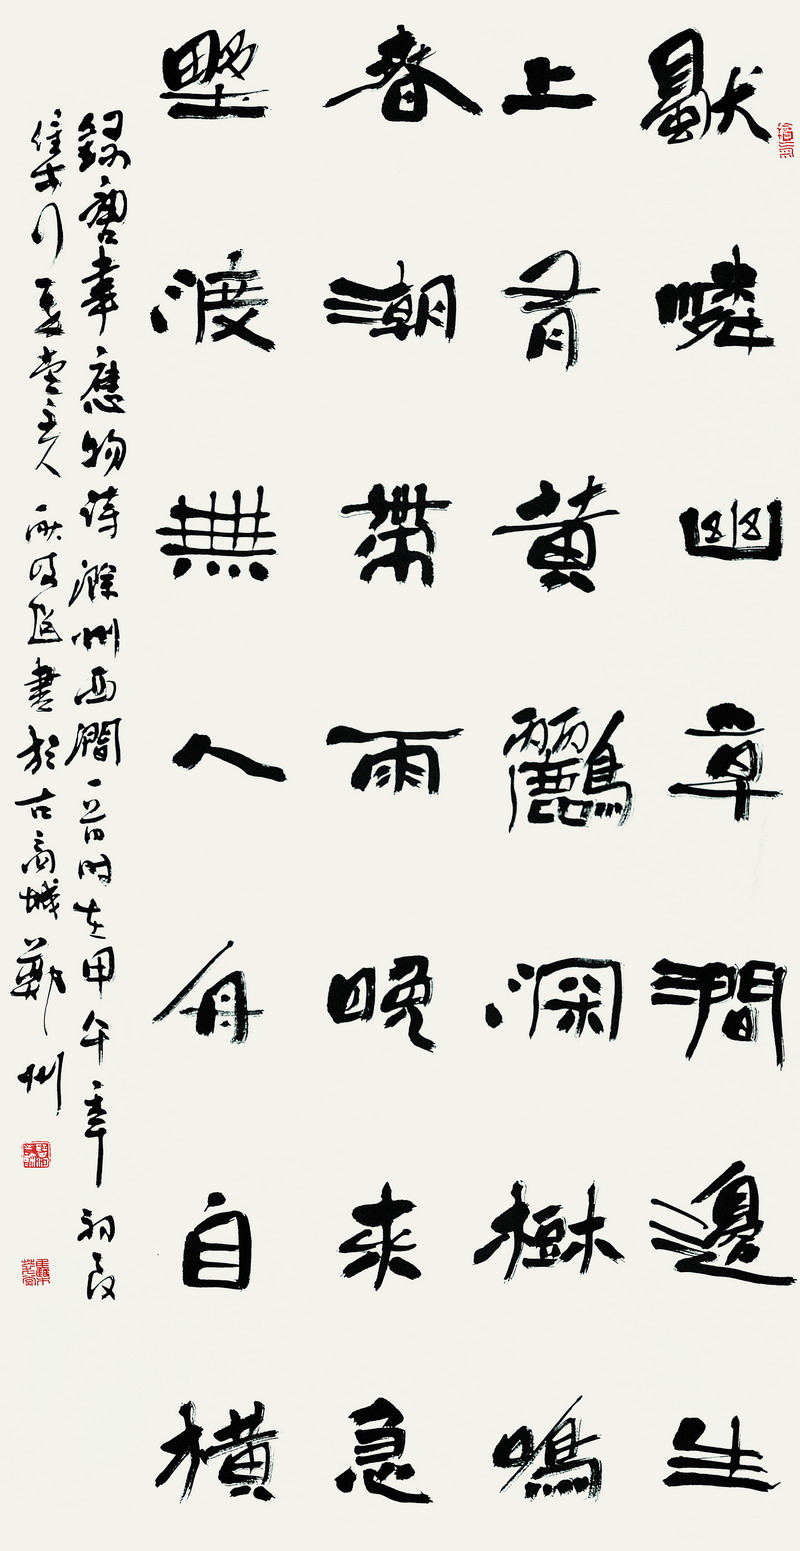 獨憐幽草澗邊生
上有黃鸝深樹鳴
春潮帶雨晚來急
野渡無人舟自橫
錄唐韋應物詩滁州西澗一首時在甲午年初
主人書於古商城鄭州